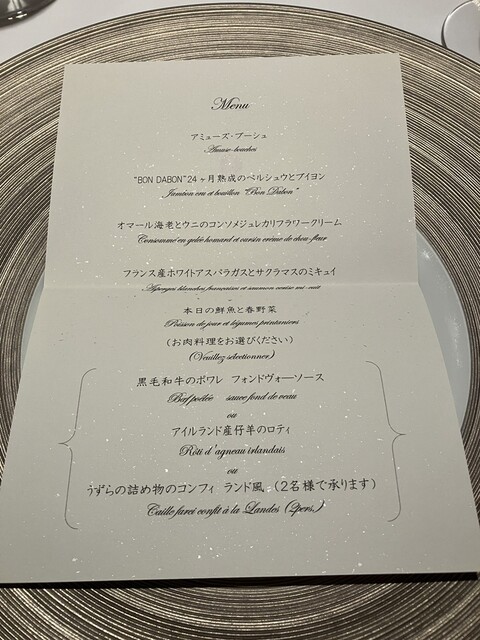 Menu
アミューズ・ブーシュ
Amuse-bouches
"BON DABON"24ヶ月熟成のペルシュウとブイヨン
Jambon cru et bouillon "Bon Dabon"
オマール海老とウニのコンソメジュレカリフラワークリーム
Consommé en gelée homard et oursin crème de chou-fleur
フランス産ホワイトアスパラガスとサクラマスのミキュイ
Asperges blanches françaises et saumon cerise mi-cuit
本日の鮮魚と春野菜
Poisson de jour et légumes printaniers
(お肉料理をお選びください)
(Veuillez sélectionner)
黒毛和牛のポワレ フォンドヴォーソース
Bœf poêlée sauce fond de veau
ou
アイルランド産仔羊のロティ
Rôti d'agneau irlandais
ou
うずらの詰め物のコンフィ ランド風 (2名様で承ります)
Caille farci confit à la Landes (2pers.)